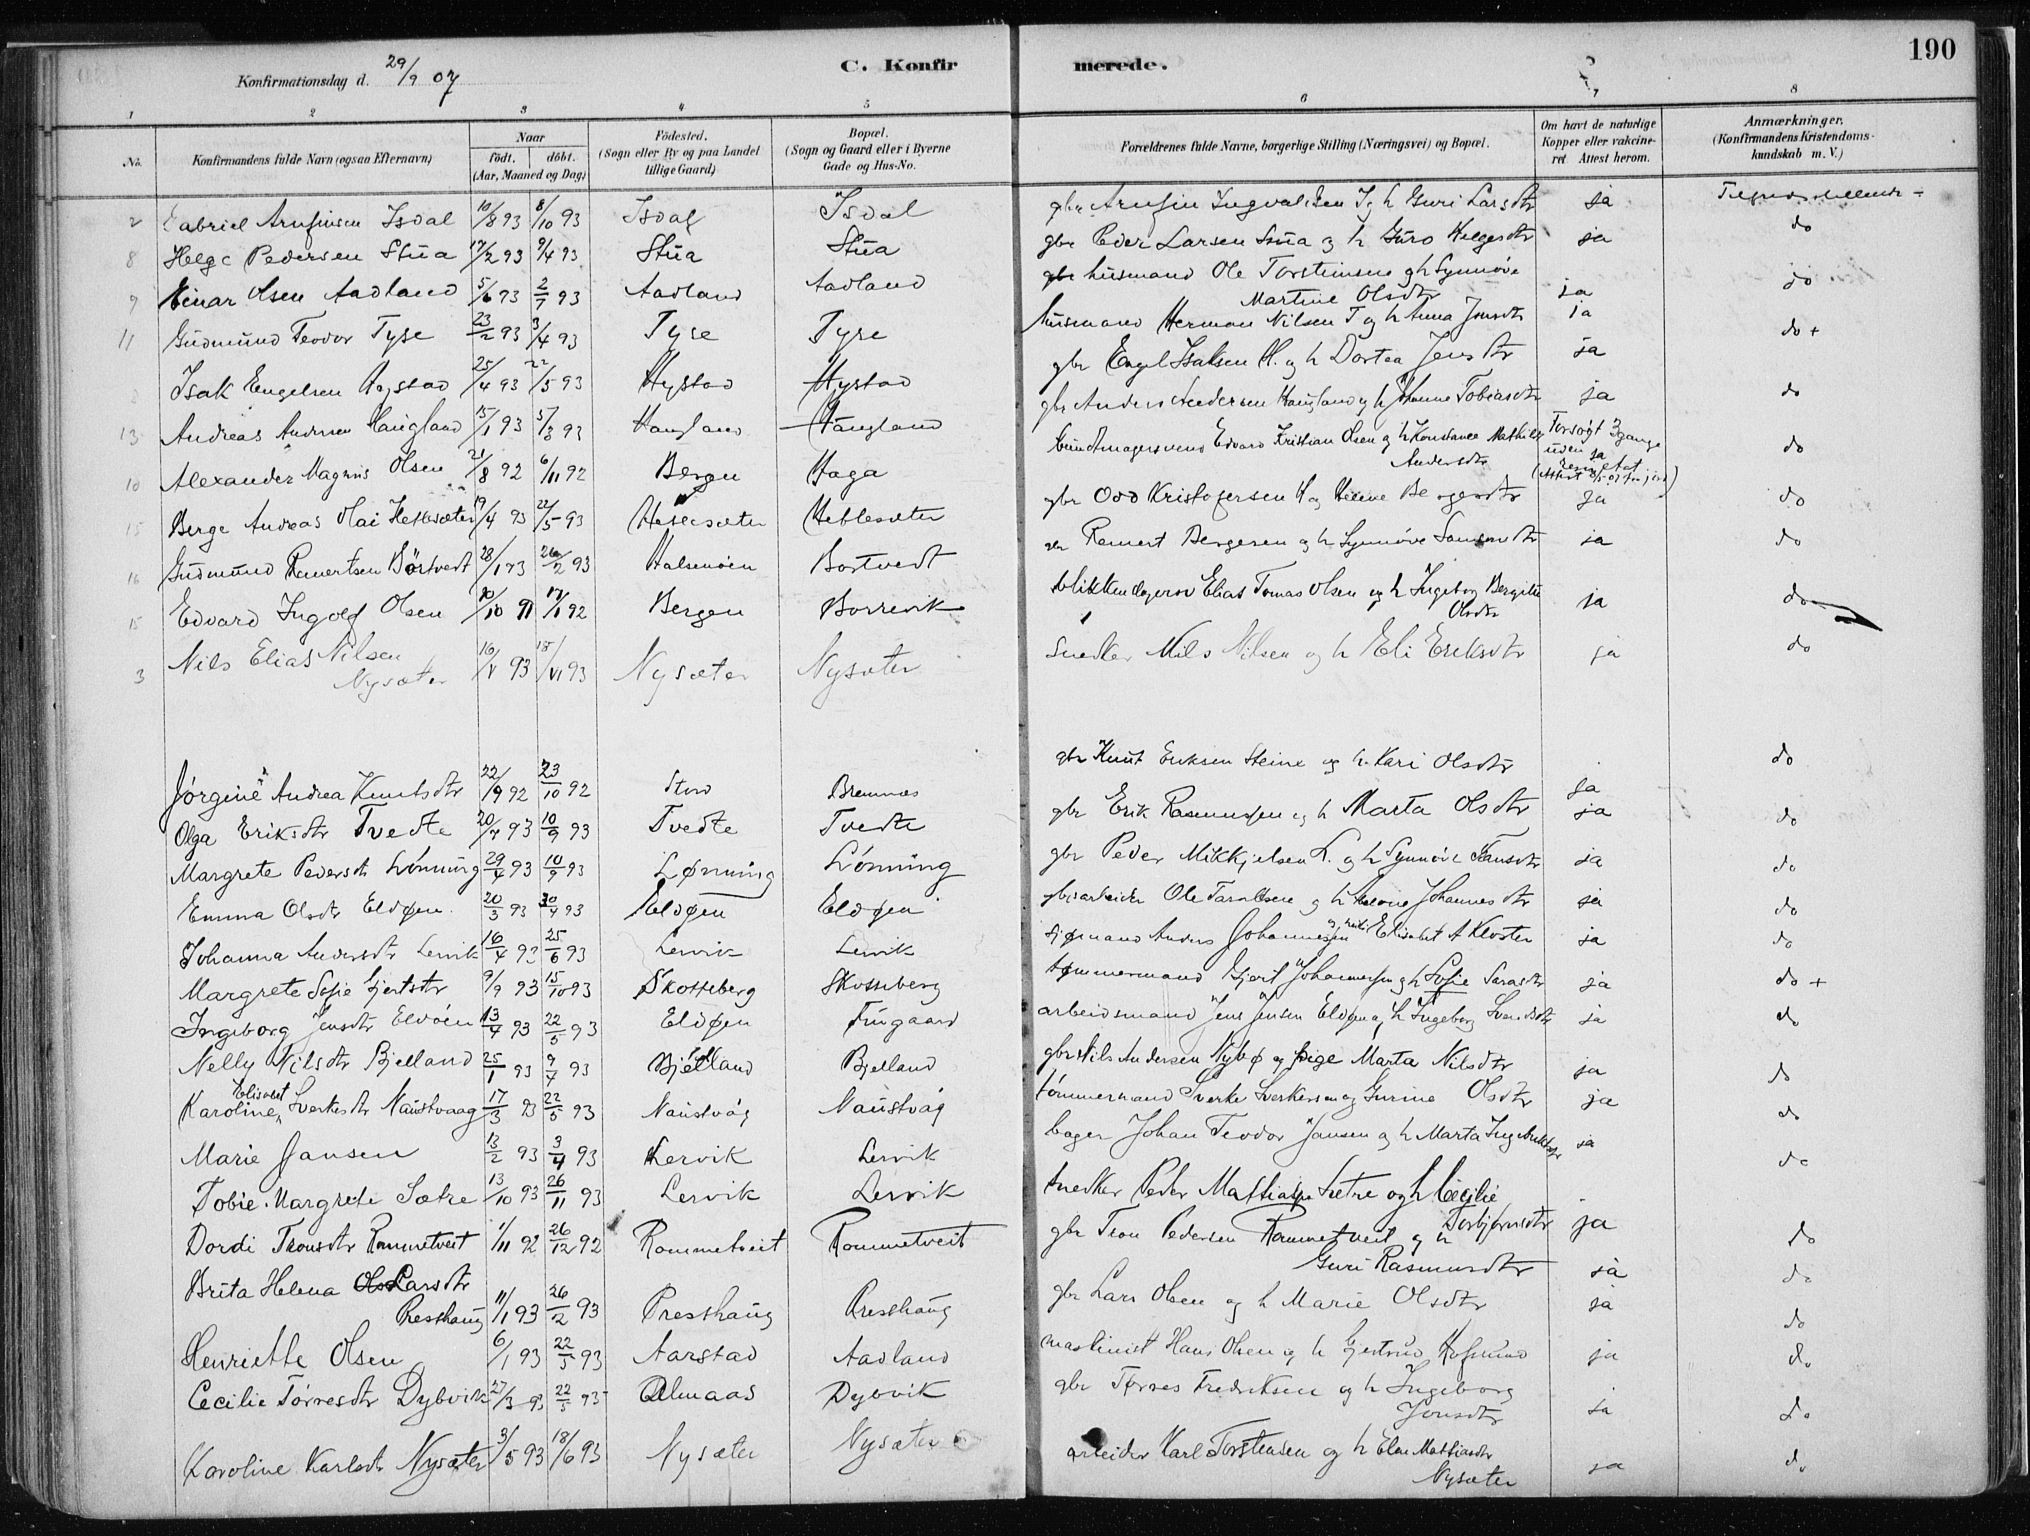 190
C. Konfirmerede.
Konfirmationsdag d. 29/9 07
1 2 3 4 5 6 7 8
No.
Konfirmandens fulde Navn (ogsaa Efternavn)
Naar
født. døbt.
(Aar, Maaned og Dag)
Fødested.
(Sogn eller By og paa Landet
tillige Gaard)
Bopæl.
(Sogn og Gaard eller i Byerne
Gade og Hus-No.
Forældrenes fulde Navne, borgerlige Stilling (Næringsvei) og Bopæl.
Om havt de naturlige
Kopper eller vakcine-
ret. Attest herom.
Anmærkninger.
(Konfirmandens Kristendoms-
kundskab m. V.)
2 Gabriel Arnfinsen Isdal 10/8 93 8/10 93 Isdal Isdal gbr Arnfin Ingvaldsen I og h Guri Larsdtr ja Tilfredsstillende
8 Helge Pedersen Stua 17/2 93 9/4 93 Stua Stua gbr Peder Larsen Stua og h Guro Helgesdtr ja do
9 Einar Olsen Aadland 5/6 93 2/7 93 Aadland Aadland husmand Ole Torsteinsen og h Synnøve
Martine Olsdtr ja do
11 Gudmund Teodor Tyse 23/2 93 3/4 93 Tyse Tyse husmand Herman Nilsen T og h Anna Jonsdtr ja do +
Isak Engelsen Hystad 25/4 93 22/5 93 Hystad Hystad gbr Engel Isaksen H. og h Dortea Jensdtr ja
13 Andreas Andersen Haugland 15/1 93 5/3 93 Haugland Haugland gbr Anders Andersen Haugland og h Johanne Tobiasdtr ja do
10 Alexander Magnus Olsen 21/8 92 6/11 92 Bergen Haga bundtmagersvend Edvard Kristian Olsen og h Konstance Mathilde
Andersdtr Forsøgt 3 gange
uden do
15 Berge Andreas Olai Heblesæter 19/4 93 22/5 93 Heblesæter Heblesæter gbr Odd Kristofersen H og Helene Bergesdtr ja do
16 Gudmund Remertsen Børtvedt 28/1 93 26/2 93 Halsenøen Bortvedt Remert Bergesen og h Synnøve Samsondtr ja do
15 Edvard Ingolf Olsen 10/10 91 17/1 92 Bergen Borrevik Elias Tomas Olsen og h Ingeborg Bergitte
Olsdtr ja do
3 Nils Elias Nilsen
Nysæter 16/V 93 18/VI 93 Nysæter Nysæter Snedker Nils Nilsen og h Eli Eriksdtr ja do
Jørgine Andrea Knutsdtr 22/9 92 23/10 92 Stord Bremnes gbr Knut Eriksen Steine og h. Kari Olsdtr ja do
Olga Eriksdtr Tvedte 20/7 93 10/9 93 Tvedte Tvedte gbr Erik Rasmussen og h Marta Olsdtr ja do
Margrete Pedersdt Lønning 29/4 93 10/9 93 Lønning Lønning gbr Peder Mikkjelsen L. og h Synnøve Hansdtr ja do
Emma Olsdtr Eldøen 20/3 93 30/4 93 Eldøen Eldøen Ole og h Johannesdtr ja do
Johanna Andersdtr Lervik 16/4 93 25/6 93 Lervik Lervik sjømand Anders Johannessen og Elisabet A Kloster ja do
Margrete Sofie Gjertsdtr 9/9 93 15/10 93 Skotteberg Skotteberg tømmermand Gjert Johannessen og h Sofie Larsdtr ja do +
Ingeborg Jensdtr Eldøen 13/4 93 22/5 93 Eldøen Tungaard arbeidsmand Jens Jensen Eldøen og h Ingeborg Svendsdtr ja do
Nelly Nilsdtr Bjelland 25/1 93 9/4 93 Bjelland Bjelland gbr Nils Andersen Nybø og pige Marta Nilsdtr ja do
Elisabet
Karoline Sverkesdtr Naustvaag 17/3 93 22/5 93 Naustvåg Naustvåg tømmermand Sverke Sverkersen og Gurine Olsdtr ja do
Marie Jansen 13/2 93 3/4 93 Lervik Lervik bager Johan Teodor Jansen og h Marta Ingebriktsdtr ja do
Tobie Margrete Sætre 13/10 93 26/11 93 Lervik Lervik snedker Peder Mattiasen Sætre og h Cecilie
Torbjørnsdtr ja
Dordi Tronsdtr Rommetveit 1/11 92 26/12 92 Rommetveit Rommetveit gbr Tron Pedersen Rommetveit og h
Guri Rasmusdtr ja do
Brita Helena Larsdtr
Presthaug 11/1 93 26/2 93 Presthaug Presthaug gbr Lars Olsen og h Marie Olsdtr ja do
Henriette Olsen 6/1 93 22/5 93 Aarstad Aadland maskinist Hans Olsen og h Gjertrud ja do
Cecilie Tørresdtr Dybvik 27/3 93 22/5 93 Almaas Dybvik gbr Tørres Fredriksen og h Ingeborg
Jonsdtr ja do
Karoline Karlsdt Nysæter 3/5 93 18/6 93 Nysæter Nysæter arbeider Karl Torstensen og h Elen Mattiasdtr
Nysæter ja do